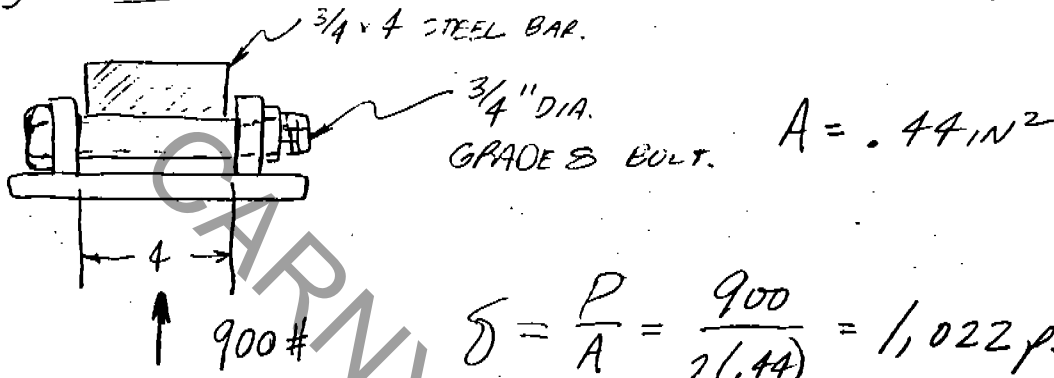 3/4 x 4 STEEL BAR.
3/4" DIA.
GRADE 8 BOLT.
A = .44 IN²
4
900 #
δ = P/A = 900/2(.44) = 1,022 p
CARNY